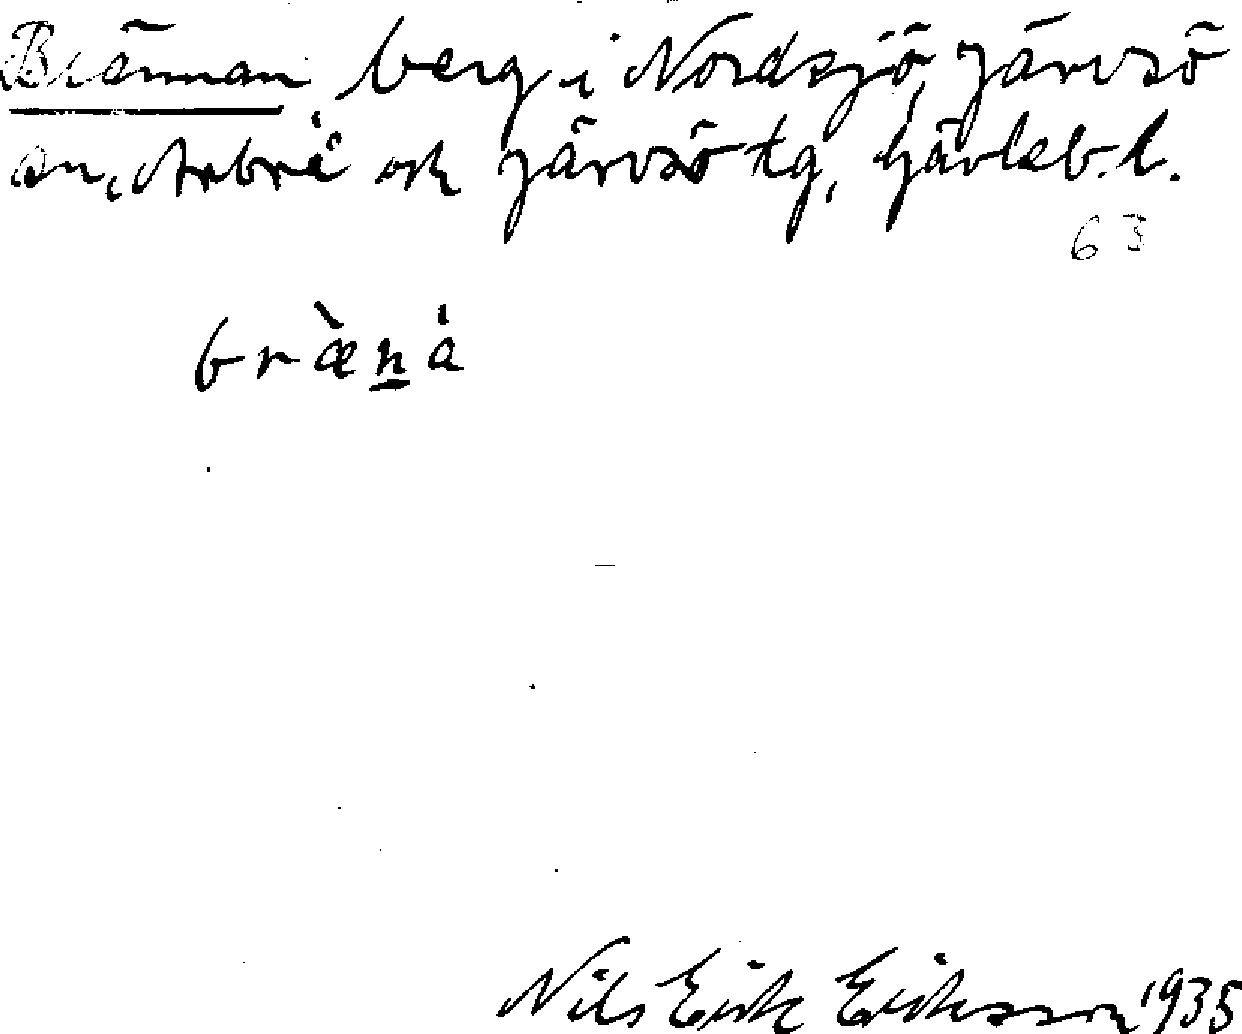 Brännan, berg i Nordsjö, Järvsö
sn, Arbrå och Järvsö tg, Gävleb. l.
63
bræ̀ṉȧ
Nils Erik Eriksson 1935